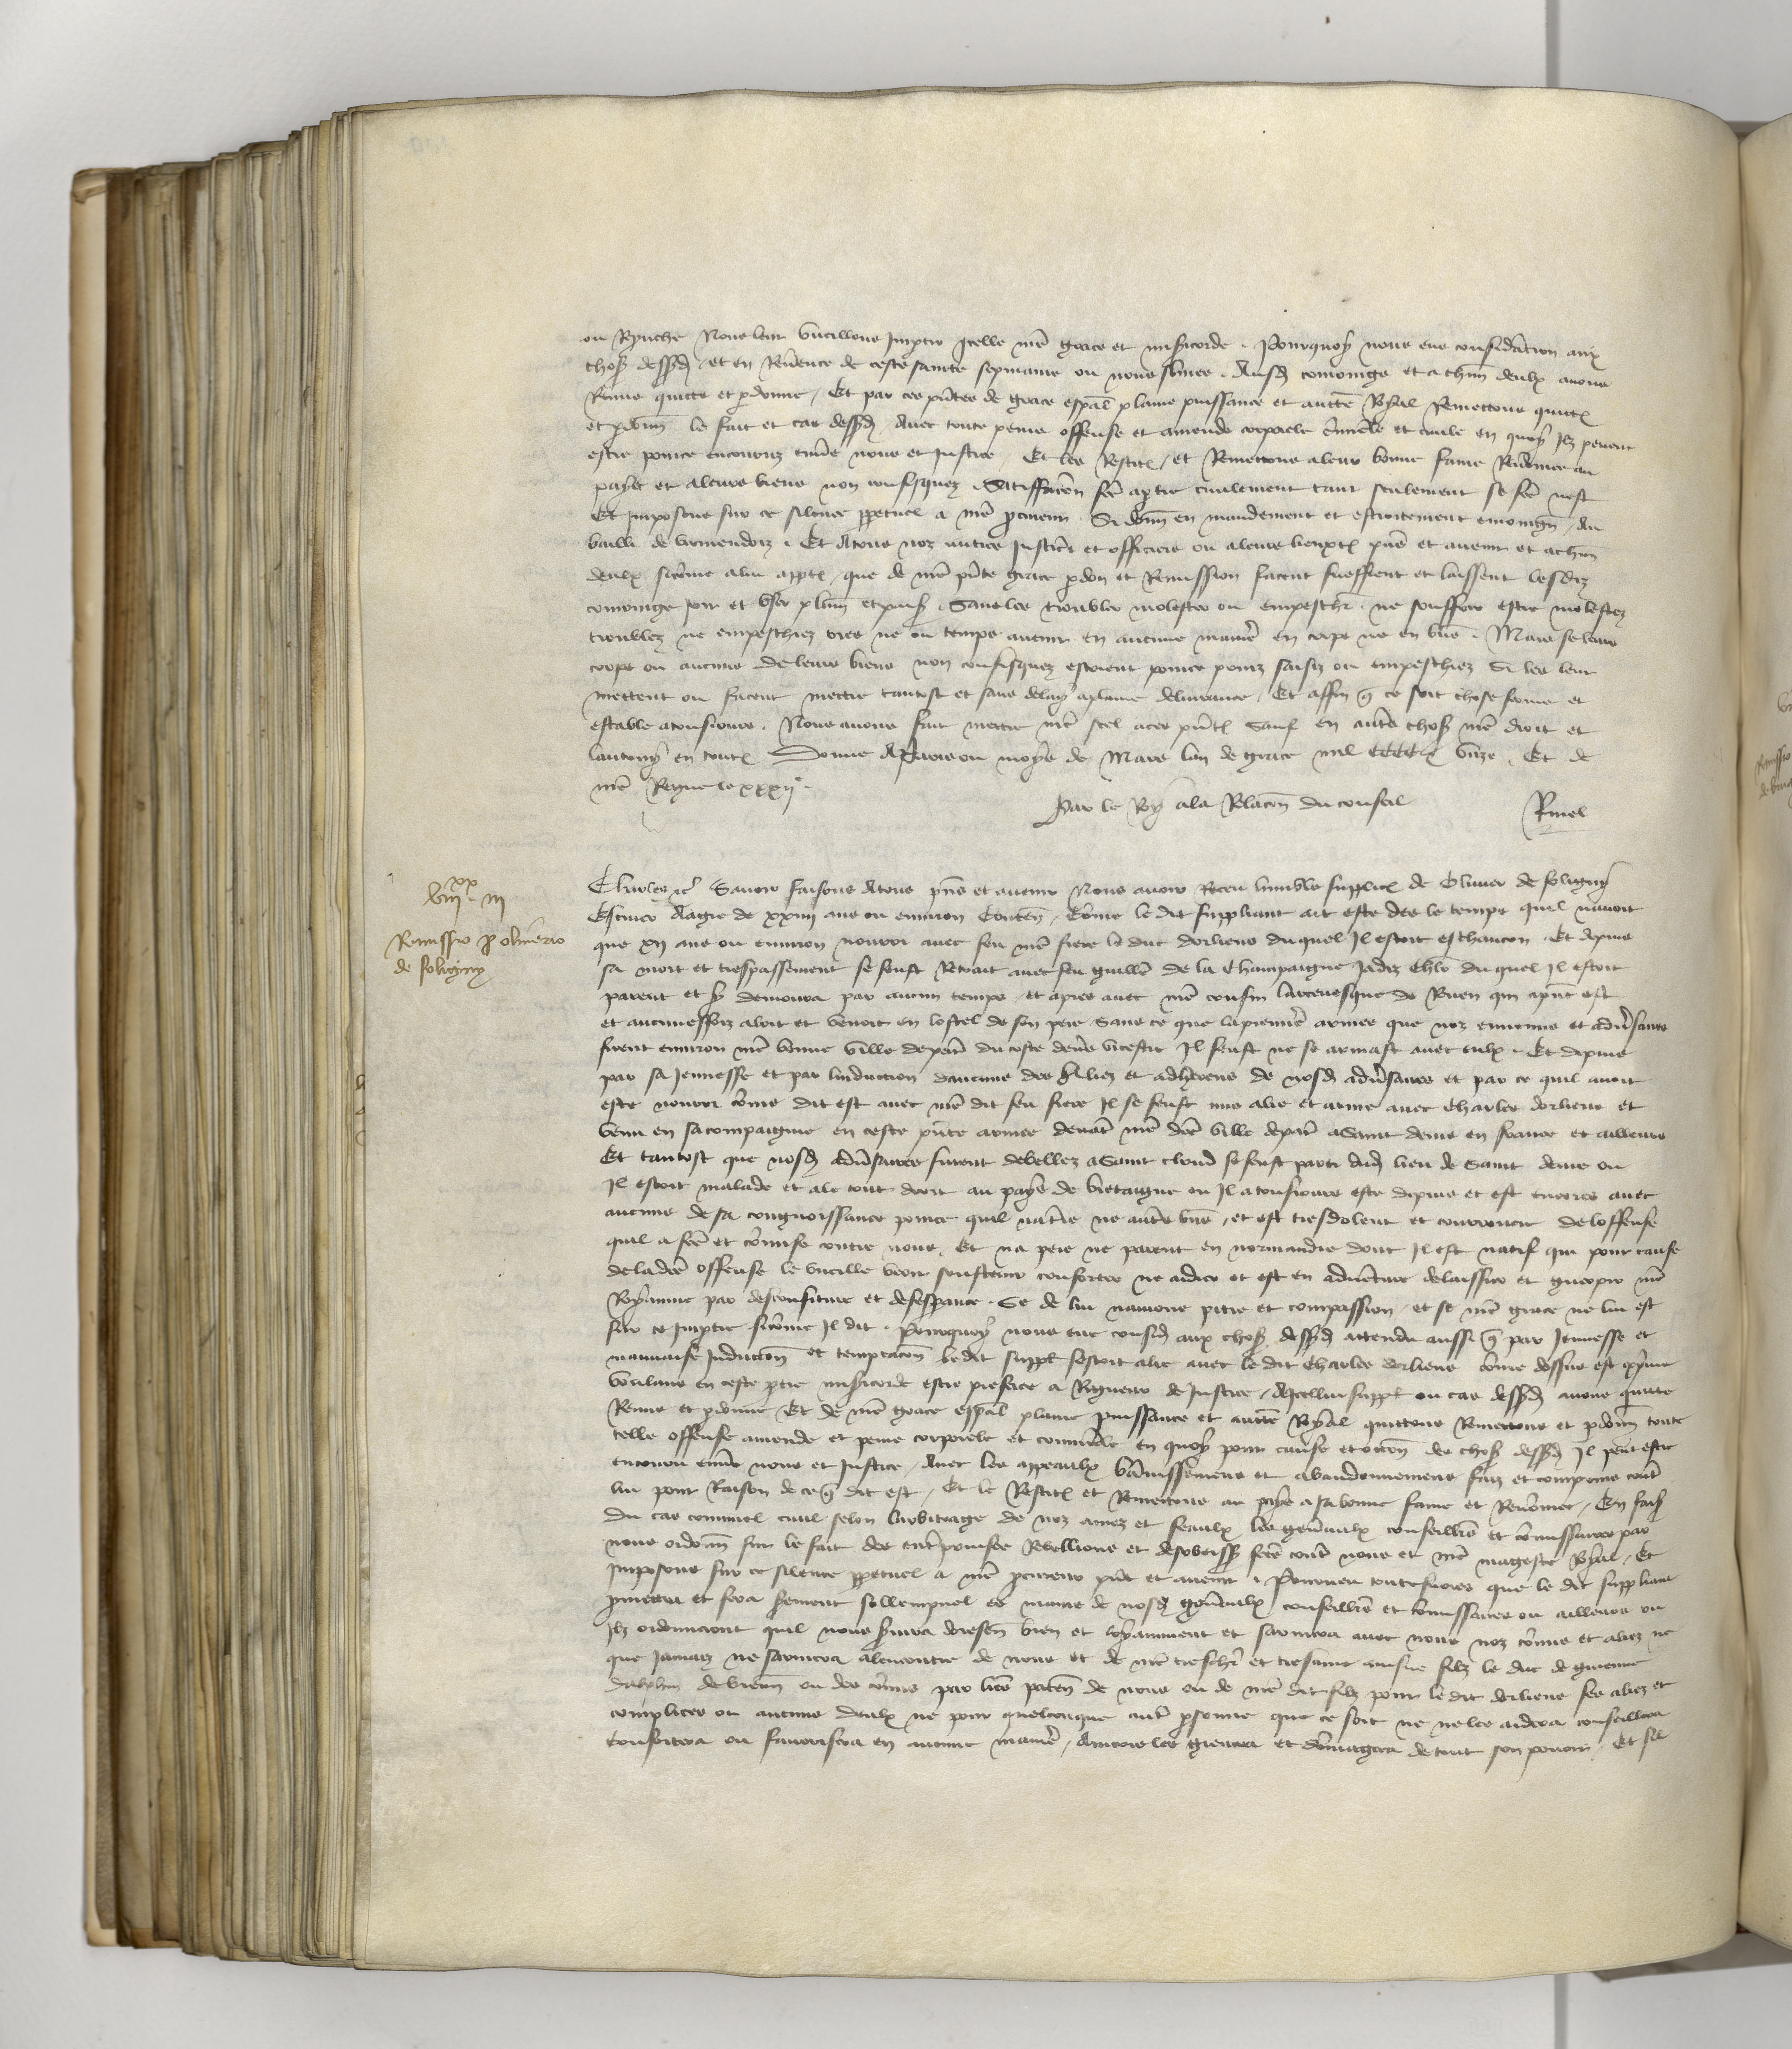 ou Royaume Nous leur vueillons Impartir Icelle nr̄e grace et miſericorde . Pourquoy nous eue conſideracion aux
choſes deſſuſd et en Reuerence de ceſte ſainte ſepmaine ou nous ſommes . Auſd et a chūn deulx auons
Remis quitte et pardonne / Et par ces pn̄tes de grace eſpal plaine puiſſance et aucte Royal Remettons quittons
et pardonn̄ le fait et cas deſſuſd / Auec toute peine offenſe et amende corporele crimele et ciuile en quoy Ilz peuent
eſtre pour ce encouruz enuers nous et Juſtice / Et les Reſtit / et Remettons a leur bonne fame Renōmee au
pays et a leurs biens non confiſquez . Satiffacōn fcē a partie ciuilement tant ſeulement ſe fcē neſt
Et Impoſons ſur ce ſilence ppetuel a nr̄e procureur . Si donn̄ en mandement et eſtroitement enioingn̄ / Au
bailli de vermendoiz . Et A tous noz autres Juſticiers et officiers ou a leurs lieuxten pn̄s et auenir et a chūn
deulx ſicōme a lui apptē / que de nr̄e pn̄te grace pardon et Remiſſion facent ſueffrent et laiſſent leſdiz
Joir et vſer plain̄ et paiſ . Sans les troubler moleſter ou empeſchr̄ . ne ſouffrir eſtre moleſtez
troublez ne empeſchiez ores ne ou temps auenir en aucune maniē en corps ne en biens . Mais ſe leurs
corps ou aucuns de leurs biens non confiſquez eſtoient pour ce prins ſaiſiz ou empeſchiez Si les leur
mettent ou facent mettre tantoſt et ſans delay a plaine deliurance . Et affin q̄ ce ſoit choſe ferme et
eſtable a touſiours . Nous auons fait mettre nr̄e ſeel a ces pn̄tes Sauf en autres choſes nr̄e droit et
lautruy en toutes . Donne A Paris ou moys de Mars lan de grace mil CCCC et vnze . Et de
nr̄e Regne le xxxij.e
Par le Roy a la Relacōn du conſeil
Charles &c Sauoir faiſons A tous pn̄s et auenir Nous auoir Receu lumble ſupplicacion de Oliuier de ſoligny
Eſcuier Aagie de xxiiij ans ou enuiron Conten̄ / Cōme le dit ſuppliant ait eſte des le temps quil nauoit
que xij ans ou enuiron nourri auec feu nr̄e frere le duc dorliens duquel Il eſtoit eſchancon . Et depuis
viij.xx iij
Remiſſio p̄ oliuerio
de ſoligny
ſa mort et treſpaſſement ſe feuſt Retrait auec feu guille de la Champaigne Jadiz Chlr̄ du quel Il eſtoit
parent et y demoura par aucun temps / et apres auec nr̄e couſin larceueſque de Rouen qui apn̄t eſt
et aucuneffoiz aloit et venoit en loſtel de ſon pere Sans ce que la premiē armee que noz ennemis et aduſaires
firent enuiron nr̄e bonne ville de paris du coſte deuers viceſtre Il feuſt ne ſe armaſt auec eulx . Et depuis
par ſa Jenneſſe et par linduction daucuns des Aliez et adherens de noſd aduſaires et par ce quil auoit
eſte nourri cōme dit eſt auec nr̄e dit feu frere Il ſe feuſt mis alie et arme auec Charles dorliens et
venu en ſa compaignie en ceſte pn̄te armee deuāt nr̄e dcē ville de paris a Saint denis en france et ailleurs
Et tantoſt que noſd aduſaires furent debellez a Saint cloud ſe feuſt parti dud lieu de Saint denis ou
Il eſtoit malade et ale tout droit au pays de bretaigne ou Il a touſiours eſte depuis et eſt encores auec
aucuns de ſa congnoiſſance pour ce quil na terre ne autres biens / et eſt treſdolent et courroucie de loffenſe
quil a fcē et cōmiſe contre nous . Et na pere ne parent en normandie dont Il eſt natif qui pour cauſe
de la dcē offenſe le vueille veoir ſouſtenir conforter ne aidier et eſt en aduenture delaiſſier et guerpir nr̄e
Royaume par deſconfiture et deſeſperance . Se de lui nauions pitie et compaſſion / et ſe nr̄e grace ne lui eſt
ſur ce Impartie ſicōme Il dit . Pourquoy nous eue conſid aux choſes deſſuſd attendu auſſi q̄ par Jenneſſe et
mauuaiſe Inductōn et temptacōn le dit ſuppt ſeſtoit alie auec le dit Charles dorliens cōme deſſus eſt exprime
voulans en ceſte partie miſericorde eſtre preferee a Rigueur de Juſtice / A Icellui ſuppt ou cas deſſuſd auons quitte
Remis et pardonne Et de nr̄e grace eſpal plaine puiſſance et aucte Royal quittons Remettons et pardonn̄ toute
telle offenſe amende et peine corporele et criminele en quoy pour cauſe et occōn des choſes deſſuſd Il peut eſtre
encouru enuers nous et Juſtice / Auec les appeaulx bānniſſemens et abandonnemens faiz et contre
lui pour Raiſon de ce q̄ dit eſt / Et le Reſtit et Remettons au pays a ſa bonne fame et Renōmee / En faiſ
du cas criminel ciuil ſelon larbitrage de noz amez et feaulx les gen̄raulx conſeillrs et cōmiſſaires par
nous ordonn̄ ſur le fait des entrepriſes Rebellions et deſobeiſſ fcēs contre nous et nr̄e mageſte Royal / Et
Impoſons ſur ce ſilence ppetuel a nr̄e procureur pn̄t et auenir . Pourueu touteſuoies que le dit ſuppliant
pmettra et fera ſerement ſollempnel es mains de noſd gen̄raulx conſeillrs et cōmiſſaires ou ailleurs ou
Ilz ordonneront quil nous ſeruira doreſen̄ bien et loyaument et ſarmera auec nous noz cōmis et aliez ne
que Jamaiz ne ſarmera a lencontre de nous et de nr̄e treſchr̄ et treſame aiſne filz le duc de guienne
dalphin de vienn̄ ou des cōmis par lr̄es paten̄ de nous ou de nr̄e dit filz pour le dit dorliens ſes aliez et
complices ou aucuns deulx ne pour quelconque autre perſonne que ce ſoit ne ne les aidera conſeillera
confortera ou fauoriſera en aucune maniē / Aincois les greuera et dōmagera de tout ſon pouoir / Et ſil